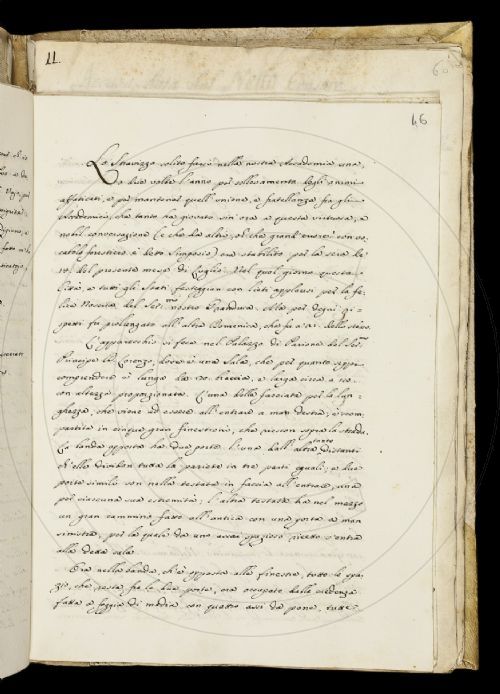 11.
60
46
Lo Stravizzo solito farsi nella nostra Accademia una,
o due volte l'anno per sollevamento degli animi
affaticati, e per mantener quell'unione, e fratellanza fra gli
Accademici, che tanto ha giovato sin'ora a questa virtuosa, e
nobil conversazione (e che da altri, ch'è che grand'errore con vo-
cabolo forestiero è detto Simposio) era stabilito per la sera de
del presente mese di Luglio: Nel qual giorno questa
Città, e tutti gli Stati festeggian con lieti applausi per la fe-
lice Nascita del Ser.mo nostro Granduca. Ma per degni ri-
spetti fu prolungato all'altra Domenica, che fu a' dello stesso.
L'apparecchio si fece nel Palazzo di Parione del Ser.mo
Principe Lorenzo, dove è una Sala, che per quanto si può
comprendere è lunga da 20. braccia, e larga circa a
con altezza proporzionata. L'una delle facciate per la lun-
ghezza, che viene ad essere all'entrare a man destra, è com-
partita in cinque gran finestroni, che riescon sopra la strada.
La banda opposta ha due porte l'una dall'altra tanto distanti
ch'elle dividon tutta la pariete in tre parti eguali; e due
porte simili son nella testata in faccia all'entrare, una
per ciascuna sua estremità; l'altra testata ha nel mezzo
un gran cammino fatto all'antica con una porta a man
sinistra, per la quale da uno assai spazioso ricetto s'entra
alla detta sala.
Era nella banda, ch'è opposta alle finestre, tutto lo spa-
zio, che resta fra le due porte, era occupato dalla credenza
fatta a foggia di media con quattro assi da pane, tutte